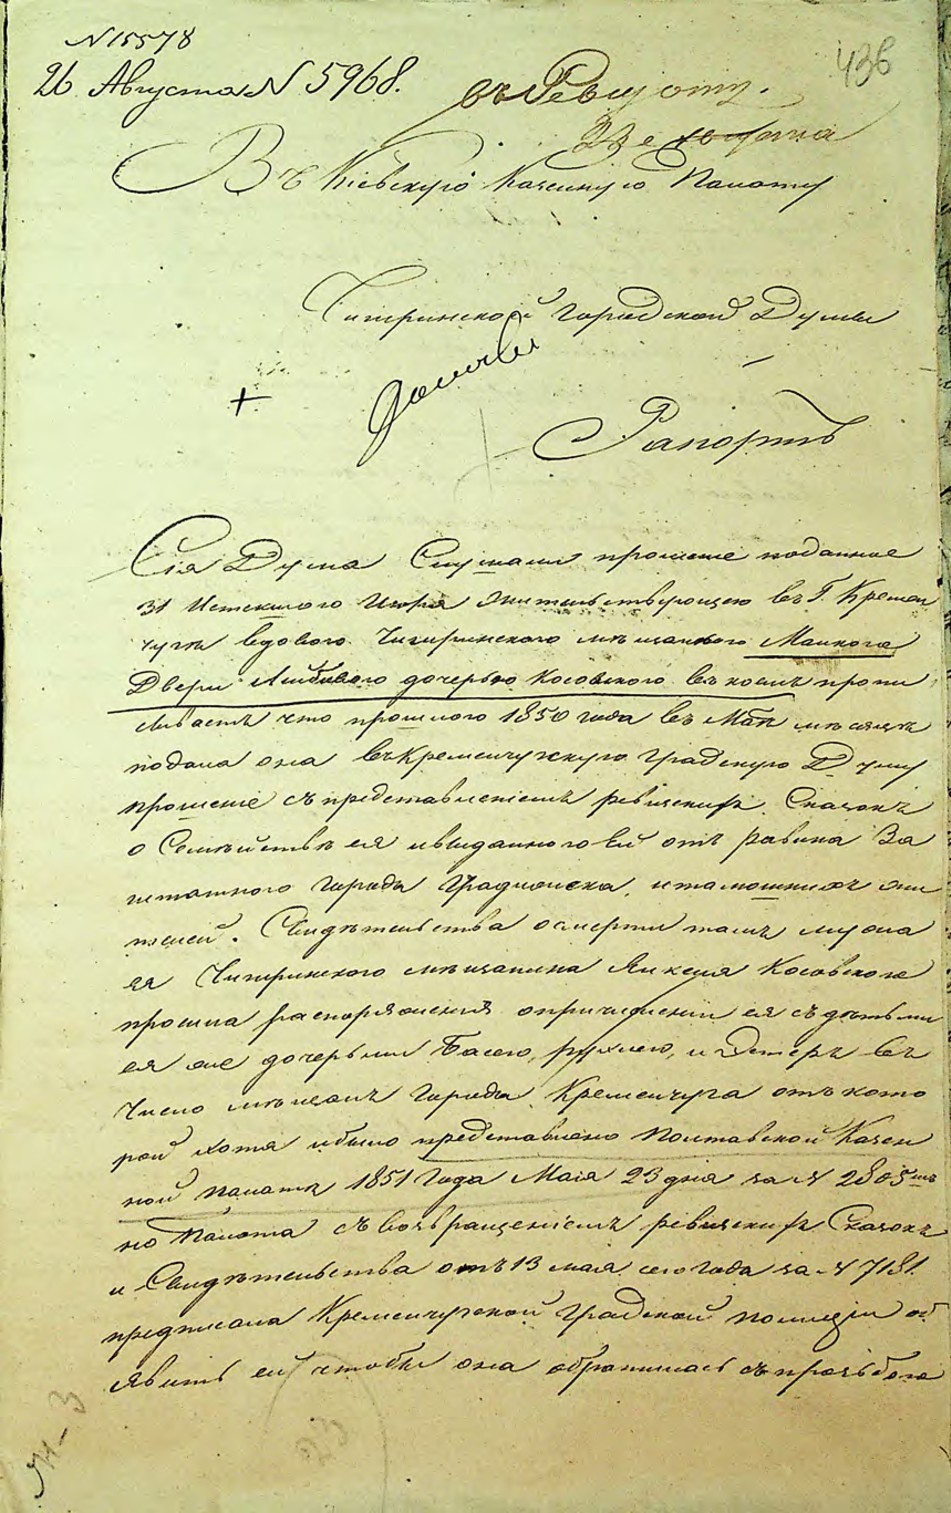 N 15578
26 Августа N 5968.
436
въ Рев. отт.
Въ Кіевскую Казенную Палату
Чигринской Городской Думы
Рапортъ
Сія Дума Слушали прошеніе поданное
31 Истекшого Июля Жительствующею въ Г. Кремен
чугѣ вдовою Чигиринского мѣщанина
дочерью Косовского въ коемъ пропи
сываетъ что прошлого 1850 года въ Маѣ мѣсяцѣ
подала она въ Кременчугскую Градскую Думу
прошеніе съ представленіемъ ревизскихъ Сказокъ
о Семѣйствѣ ея и выданного Ей отъ равина За
штатного Города Градижска, и тамошнихъ жи
телей. Свидѣтельства о смерти тамъ мужа
ея Чигринского мѣщанина Янкеля Косовского
просила распоряженія о причисленіи ея съ дѣтьми
ея же дочерьми Басею, Рухлею, и Эстеръ въ
Число мѣщанъ Города Кременчуга отъ кото
рой хотя и было представлено Полтавской Казен
ной палатѣ 1851 Года Мая 23 дня за N 2805мъ
но Палата съ возвращеніемъ ревизскихъ Сказокъ
и Свидѣтельства отъ 13 мая сего года за N 7181.
предписала Кременчугской Градской полиціи об
явить ей чтобы она обратилась съ прозьбою